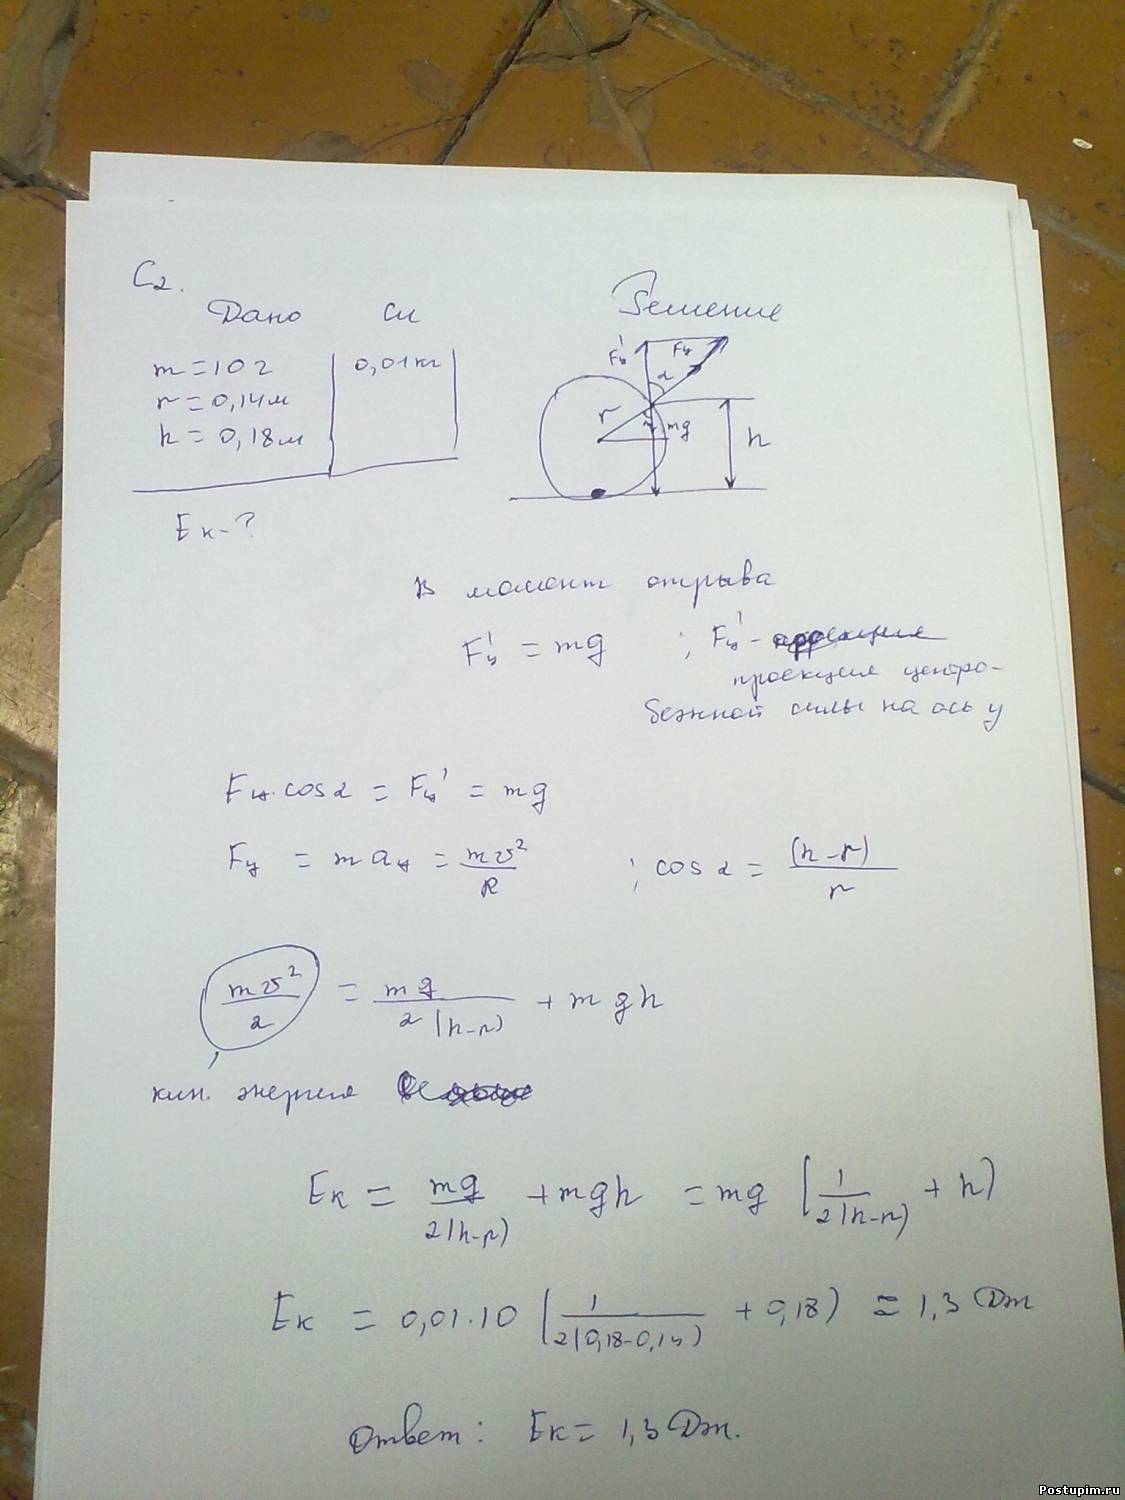 С2.
Дано СИ Решение
m = 10 г 0,01 кг
r = 0,14 м
h = 0,18 м
Eк - ?
Fц' Fц α
r mg h
В момент отрыва
Fц' = mg ; Fц' -
проекция центро-
бежной силы на ось y
Fц·cos α = Fц' = mg
Fц = m aц = mv²/R ; cos α = (h-r)/r
mv²/2 = mg/2(h-r) + mgh
кин. энергия
Eк = mg/2(h-r) + mgh = mg (1/2(h-r) + h)
Eк = 0,01·10 (1/2(0,18-0,14) + 0,18) ≈ 1,3 Дж
Ответ: Eк = 1,3 Дж.
Postupim.ru